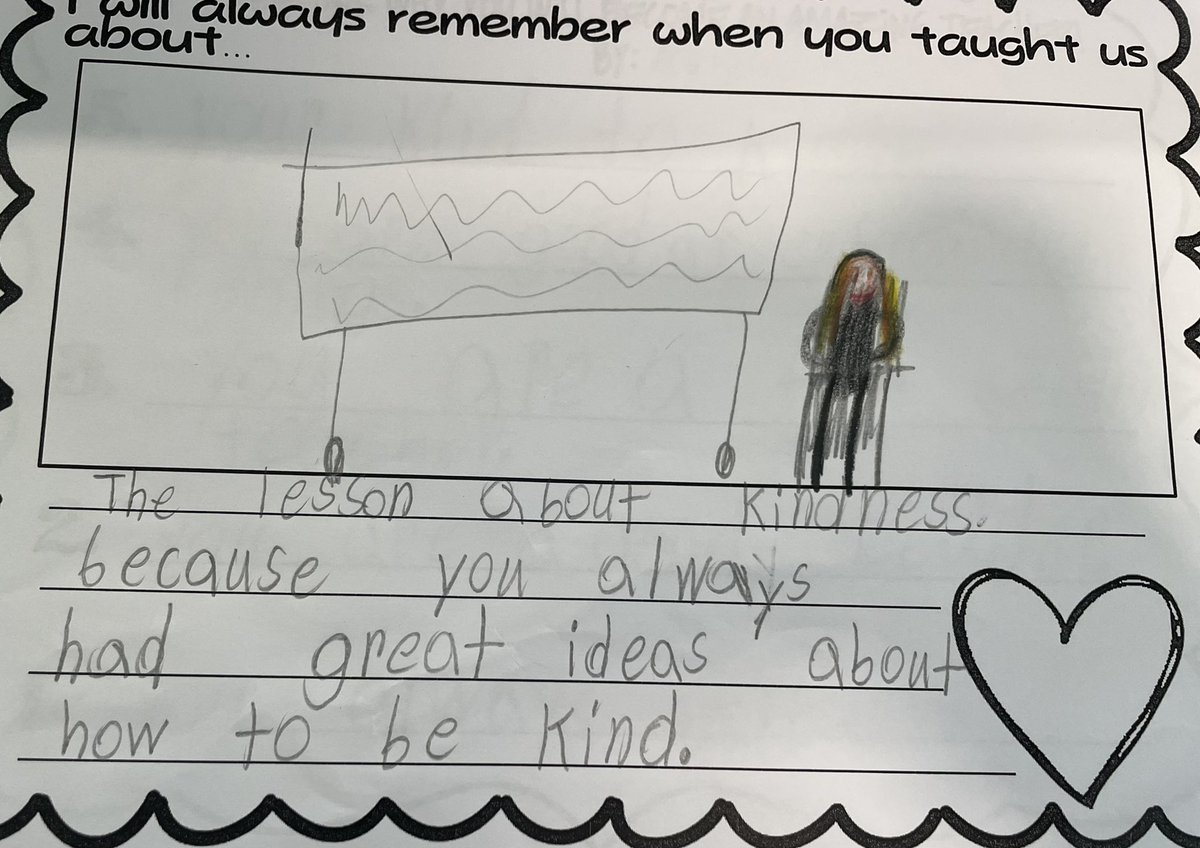 I will always remember when you taught us
about...
The lesson about kindness.
because you always
had great ideas about
how to be kind.